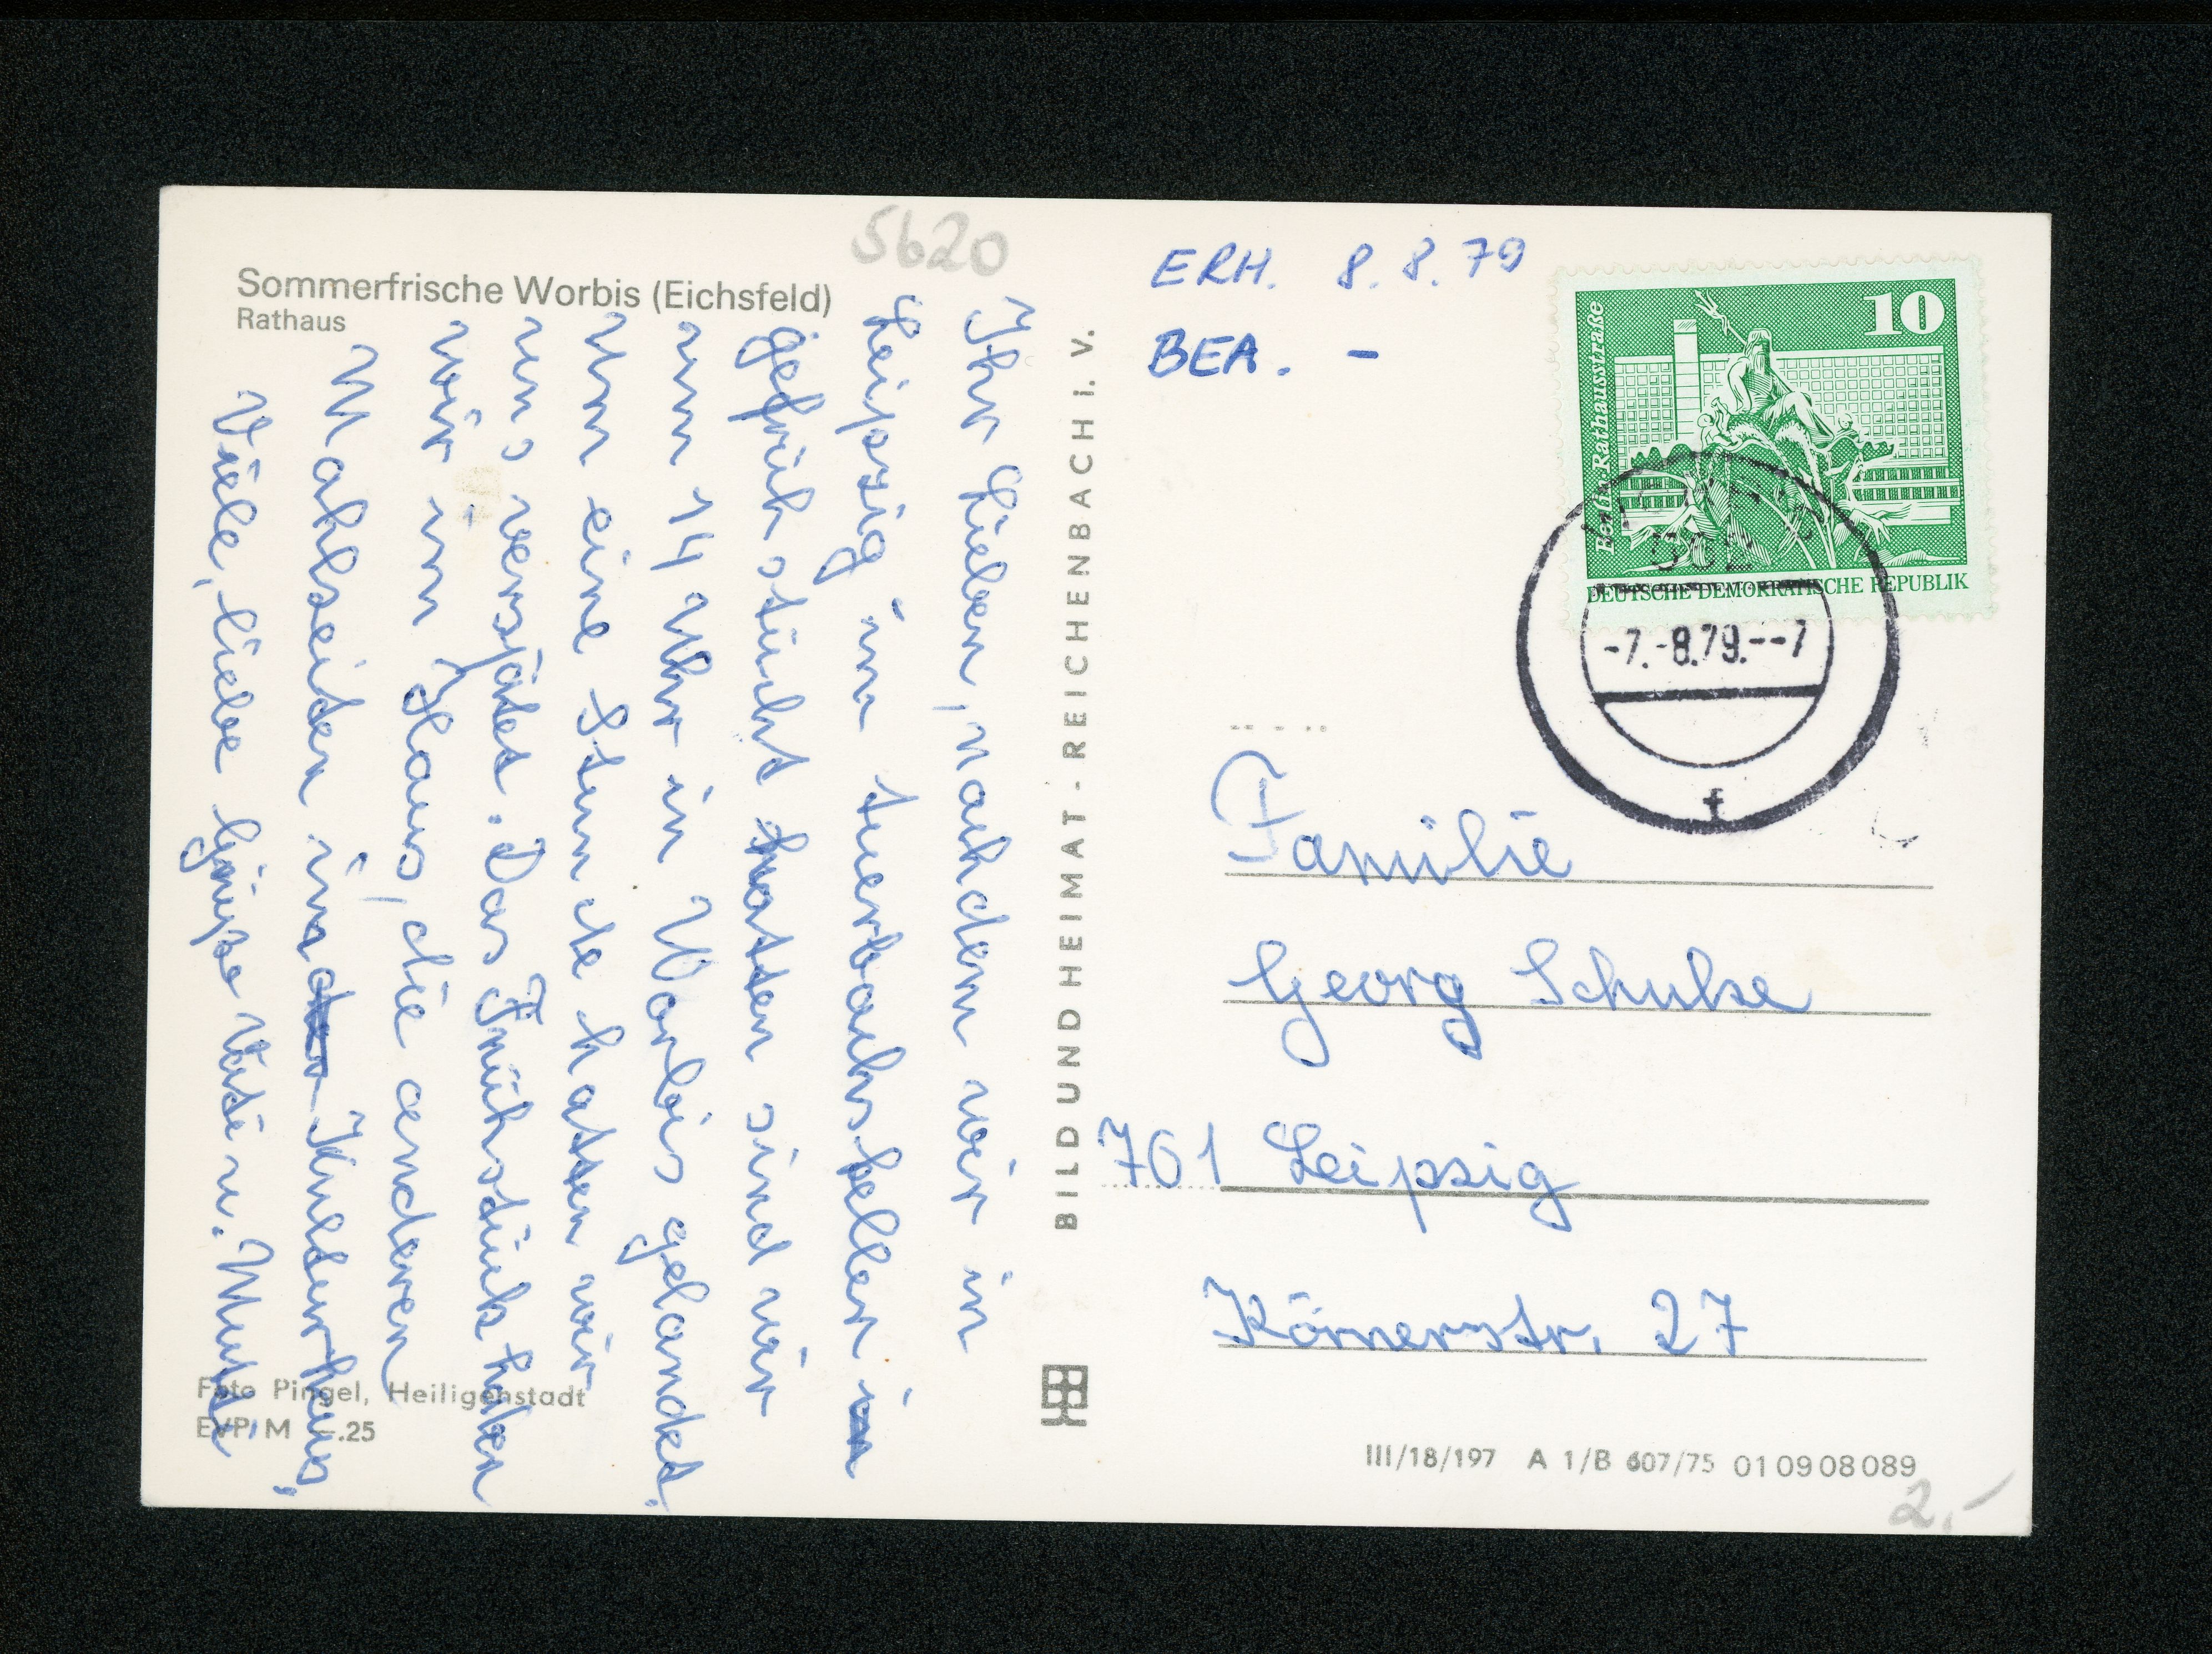 5620
Sommerfrische Worbis (Eichsfeld)
Rathaus
Ihr Lieben, nachdem wir in
Leipzig im Auerbachskeller in
gefrühstückt hatten sind wir
um 14 Uhr in Worbis gelandet.
Um eine Stunde hatten wir
uns verspätet. Das Frühstück haben
wir im Haus, die anderen
Mahlzeiten im Kulturhaus.
Viele, liebe Grüße Vati u. Mutti
Foto Pingel, Heiligenstadt
EVP M .25
BILD UND HEIMAT-REICHENBACH i. V.
ERH. 8.8.79
BEA. -
10
Berlin Rathausstraße
DEUTSCHE DEMOKRATISCHE REPUBLIK
-7.-8.79.--7
f
Familie
Georg Schulze
701 Leipzig
Körnerstr. 27
III/18/197 A 1/B 607/75 010908089
2,-